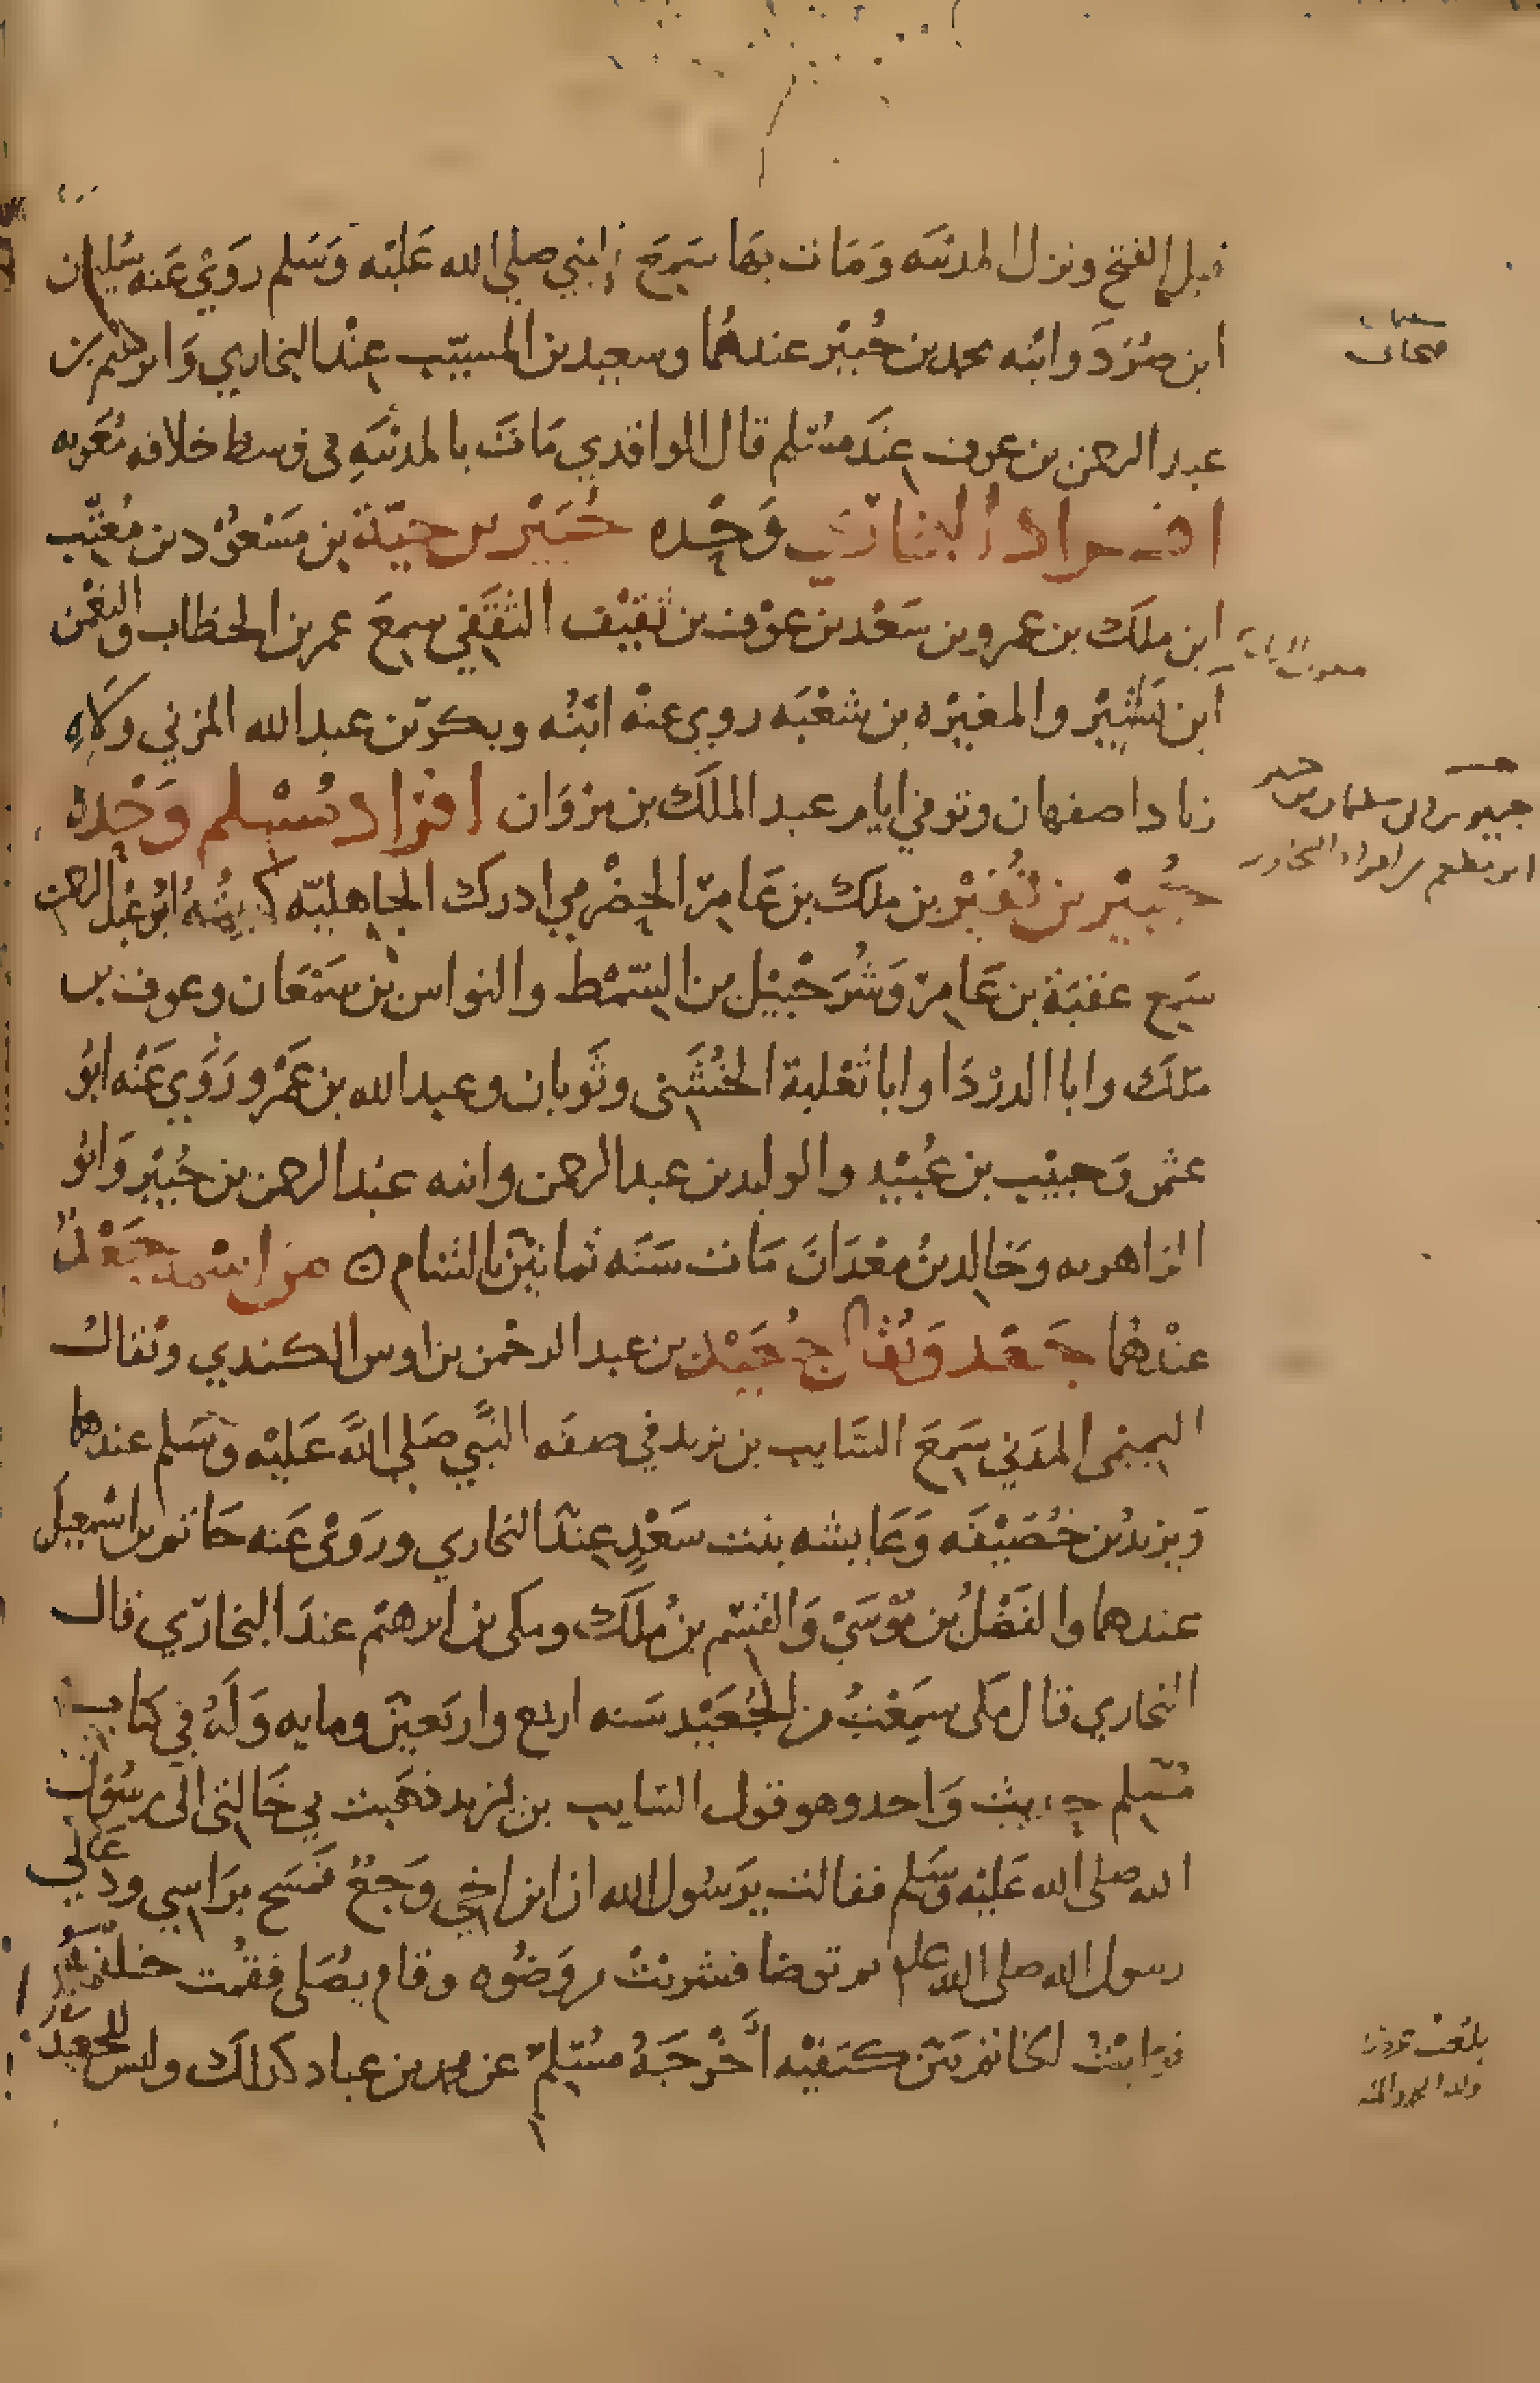 قبل الفتح ونزل المدينه وَمَات بهَا سَمِعَ النبي صلي الله عَليْه وَسَلم رَوَيْ عَنه سُليمان
ابن صُرَد وابنُه محمد بن جُبيْر عندهُما وسعيد بن المسيّب عِنْد البخاري وَابرهيم بن
عبد الرحمن بن عوف عِندَ مسْلم قال الواقدي مَاتَ بالمدينَهِ في وسط خلافه مُعَويه
افراد البخاري وَحْده جُبَيْر بن حيّة بن مَسْعُوْد بن مُعَتِّب
ابن ملك بن عمرو بن سَعْد بن عوْف بن ثقيْف الثقَفي سمِعَ عمر بن الخطاب والنعْمن
ابن بَشِيْر والمغيرْه بن شعْبَه روي عنْه ابْنُه وبكر بن عبد الله المزني وَلاهُ
زياد اصفهان وتوفي ايام عبد الملَك بن مرْوَان افرَاد مُسْلم وَحْده
جُبيْر بن نُفيْر بن ملك بن عَامِر الحضْرمي ادرك الجاهليّه كنيتُهُ ابُو عبْد الرحمن
سَمِع عقبَة بن عَامِر وَشُرَحْبيْل بن السِّمْط والنواس بن سَمْعَان وعوف بن
ملَك وابا الدرْدَا وابا ثعْلبة الخُشَني وثَوبان وعبد الله بن عَمْرو رَوَي عَنْه ابُو
عثمن وَحبيْب بن عُبيْد والوليد بن عبد الرحمن وابنه عبْد الرحمن بن جُبيْر وَابُو
الزاهريه وخَالِد بنُ معْدَانَ مَات سَنَه ثمانيْن بالشام ۝ من اسْمه جَعْدٌ
عنْدهُما جَعْد وَيُقال جُعَيْد بن عبد الرحْمن بن اوس الكندي ويُقالُ
التميمي المدَني سَمِعَ السَّايب بن يزيد في صفَه النبَّي صَلي اللهَّ عَليْه وسَلم عندهما
وَيزيدُ بن خُصَيْفَه وَعَايشه بنت سَعْدٍ عِنْدَ البخاري ورَوَيْ عَنه حَاتم بن اسْمعيل
عندهما والفَضْلُ بن مُوْسَيْ وَالقسِم بن مُلَك ومكى بن ابرهيَم عندَ البخاري قال
البخاري قال مَكى سَمِعْتُ من الجُعَيْد سَنه اربع واربَعيْن ومايه وَلَهُ في كتاب
مُسْلم حديث وَاحد وهو قول السَايب بن يزيد ذهَبت بي خَالتى الى رسُوْل
الله صلى الله عَليْه وسَلم فقالت يرَسُول الله ان ابن اخي وَجعٌ فَمسَح برَاسِي ودعَالي
رسول الله صلى الله عليه ثم توضا فشربْتُ من وَضُوه وقام يصُلى فقمُت خلف
فرَايْتُ الخاتم بَيْن كتفيْه اَخْرجَهُ مُسْلم عن محمد بن عباد كذلك وليس للجعَيْد
صحابى
جبير
ابن مطعم من افراد البخاري
بلغت